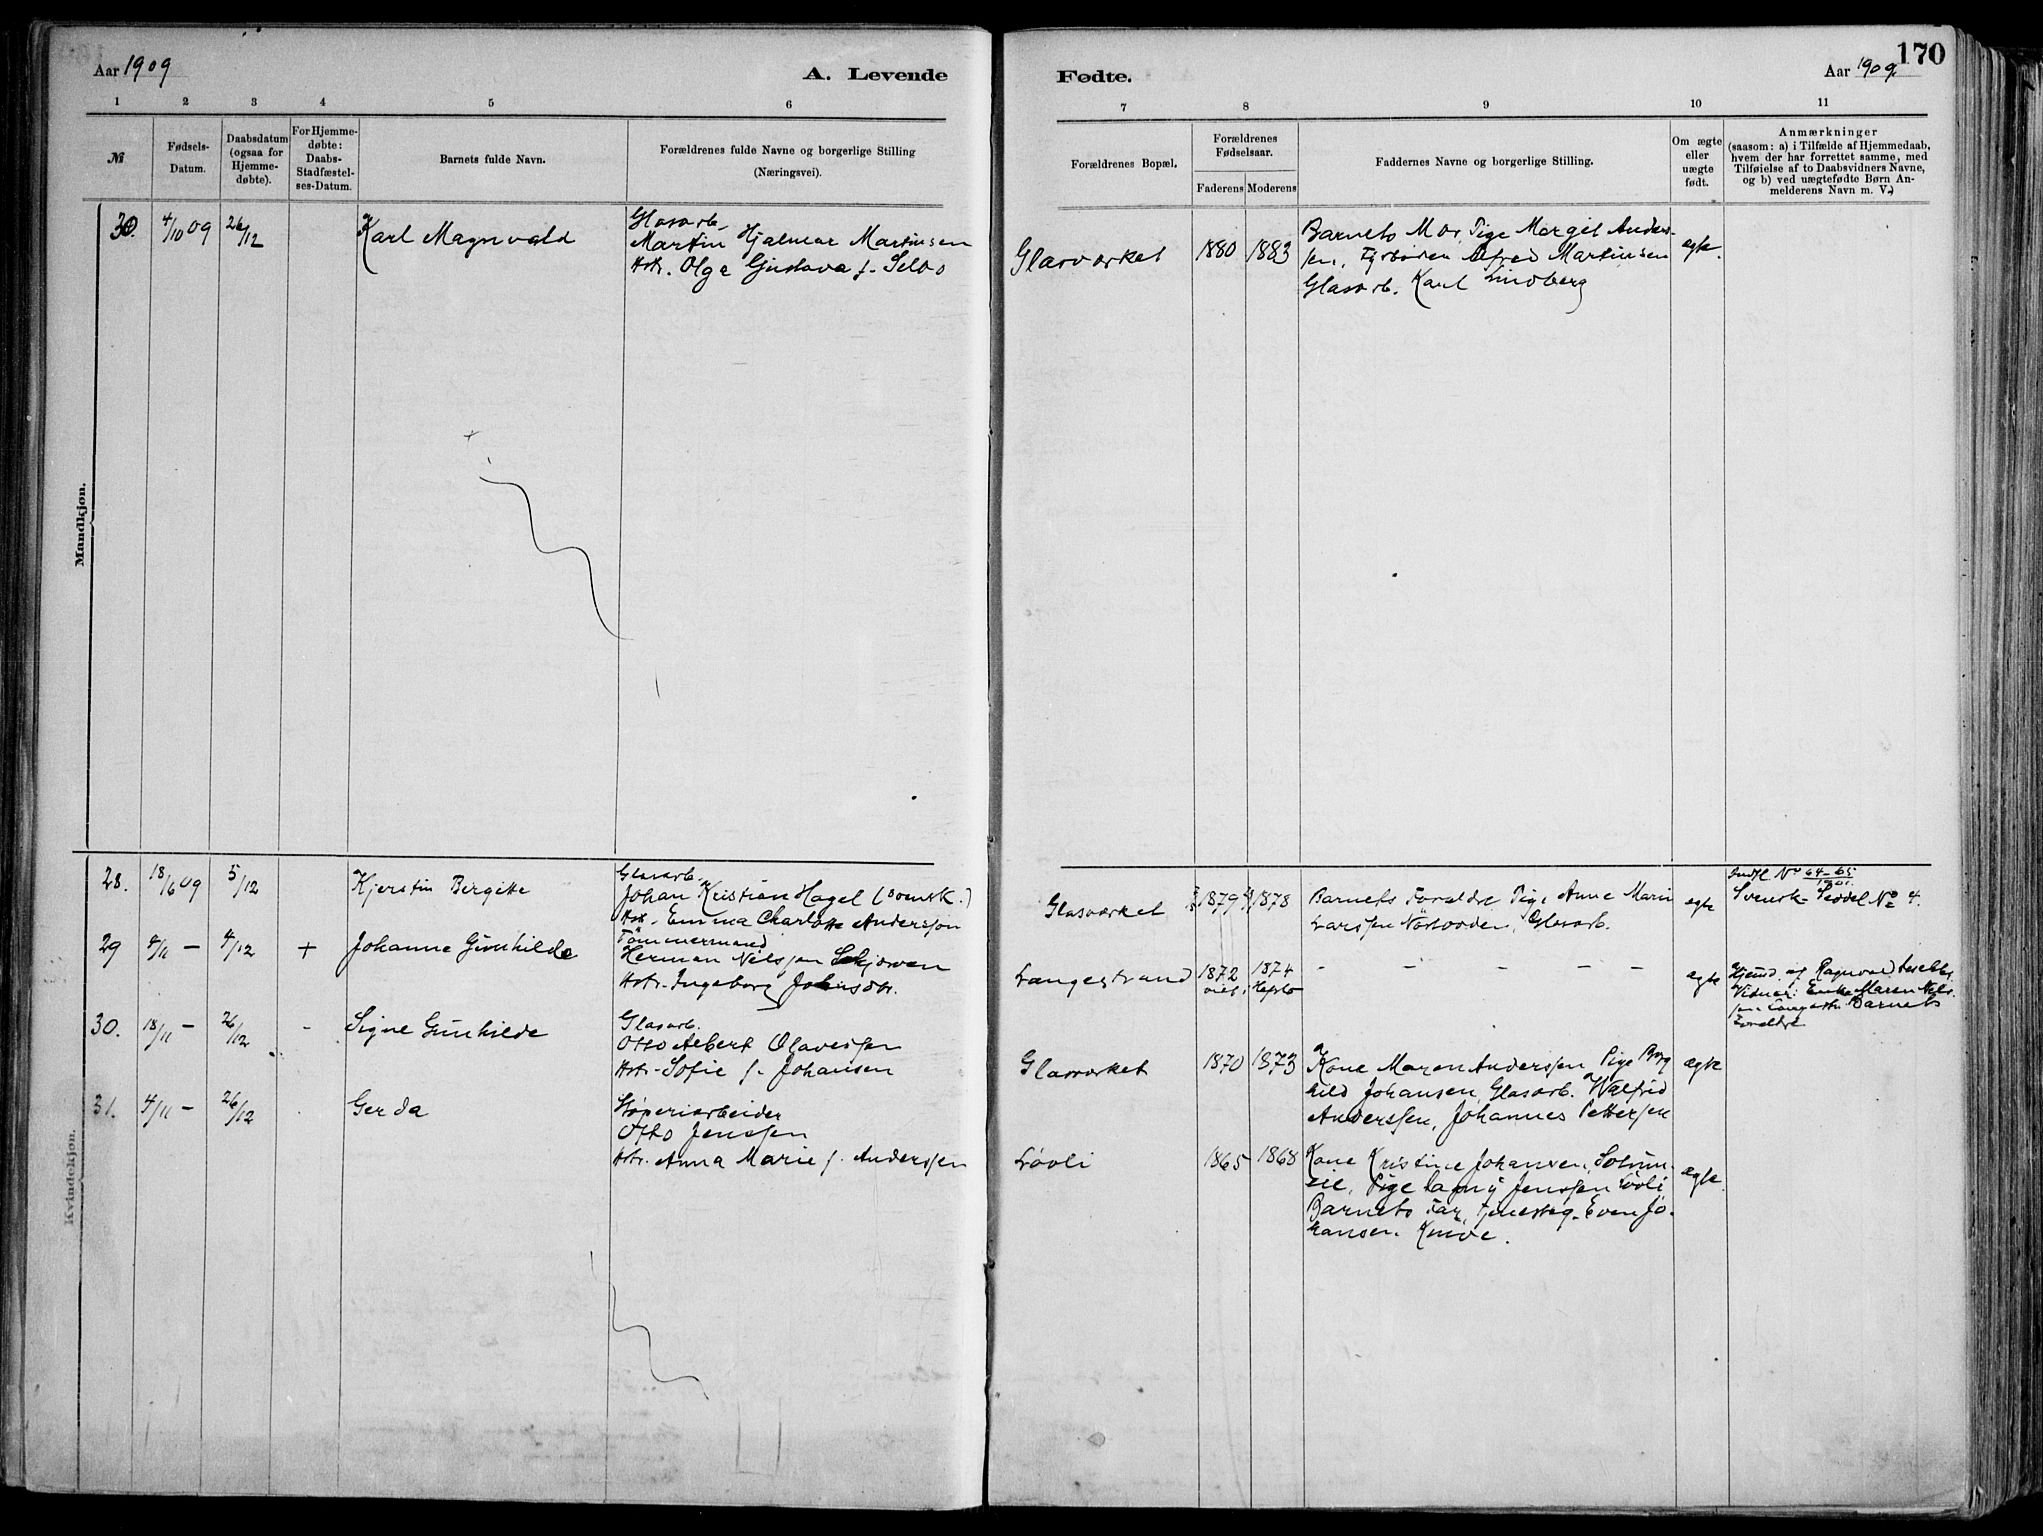 Aar 1909
A. Levende
Fødte.
Aar 1909.
170
1 2 3 4 5 6 7 8 9 10 11
№
Fødsels-
Datum.
Daabsdatum
(ogsaa for
Hjemme-
døbte).
For Hjemme-
døbte:
Daabs-
Stadfæstel-
ses-Datum.
Barnets fulde Navn.
Forældrenes fulde Navne og borgerlige Stilling
(Næringsvei).
Forældrenes Bopæl.
Forældrenes
Fødselsaar.
Faderens Moderens
Faddernes Navne og borgerlige Stilling.
Om ægte
eller
uægte
født.
Anmærkninger
(saasom: a) i Tilfælde af Hjemmedaab,
hvem der har forrettet samme, med
Tilføielse af to Daabsvidners Navne,
og b) ved uægtefødte Børn An-
melderens Navn m. V.)
Mandkjøn.
30.
4/10 09
26/12
Karl Magnvald
Glasarb.
Martin Hjalmar Martinsen
Hstr. Olga Gustava f.
Glasværket
1880
1883
Barnets Mor, Pige Margit Anders-
sen, Alfred Martinsen
Glasarb. Karl Lindberg
ægte.
Kvindekjøn.
28.
18/6 09
5/12
Kjerstin Bergitte
Glasarb.
Johan Kristian Hagel (svensk.)
Hstr. Emma Charlotte Andersson
Glasværket
1879
1878
Barnets Forældre, Pige Anne Marie
Larssen Glasarb.
ægte
Indfl. No 64-65
1901.
Svensk Seddel No 4.
29
4/11 –
4/12
+
Johanne Gunhilde
Tømmermand
Herman Nilssen
Hstr. Ingeborg
Langestrand
1872
1874
– – – – –
ægte
Hjemd. af Ragnvald
Vidner: Enke Maren Nils-
sen Barnets
Forældre
30.
18/11 –
26/12
-
Signe Gunhilde
Glasarb.
Otto Albert Olavessen
Hstr. Sofie f. Johansen
Glasværket
1870
1873
Kone Maren Anderssen, Pige Borg
hild Johansen, Glasarb. Walfrid
Anderssen, Johannes Pettersen
ægte
31.
4/11 –
26/12
Gerda
Støperiarbeider
Otto Jenssen
Hstr. Anna Marie f. Anderssen
Løvli
1865
1868
Kone Kristine Johansen,
Pige Dagny Jenssen Løvli
Barnets Far, Even Jo-
hansen.
ægte.